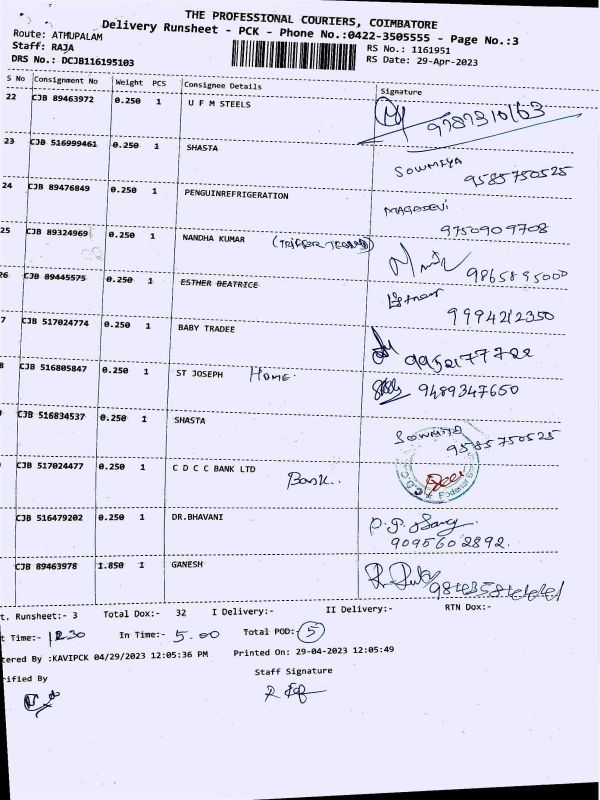 THE PROFESSIONAL COURIERS, COIMBATORE
Delivery Runsheet - PCK - Phone No.:0422-3505555 - Page No.:3
Route: ATHUPALAM
Staff: RAJA
RS No.: 1161951
DRS No.: DCJB116195103
RS Date: 29-Apr-2023
S No Consignment No Weight PCS Consignee Details Signature
22 CJB 89463972 0.250 1 U F M STEELS
23 CJB 516999461 0.250 1 SHASTA SOWMIYA 9585750525
24 CJB 89476849 0.250 1 PENGUINREFRIGERATION MAGADEVI
9750909708
25 CJB 89324969 0.250 1 NANDHA KUMAR
9865895000
26 CJB 89445575 0.250 1 ESTHER BEATRICE
9994212350
7 CJB 517024774 0.250 1 BABY TRADEE
9952177722
8 CJB 516805847 0.250 1 ST JOSEPH HOME. 9489347650
CJB 516834537 0.250 1 SHASTA SOWMIYA
9585750525
CJB 517024477 0.250 1 C D C C BANK LTD Bank..
CJB 516479202 0.250 1 DR.BHAVANI
9095602892.
CJB 89463978 1.850 1 GANESH
t. Runsheet:- 3 Total Dox:- 32 I Delivery:- II Delivery:- RTN Dox:-
t Time:- 12.30 In Time:- 5.00 Total POD:- 5
tered By :KAVIPCK 04/29/2023 12:05:36 PM Printed On: 29-04-2023 12:05:49
rified By Staff Signature